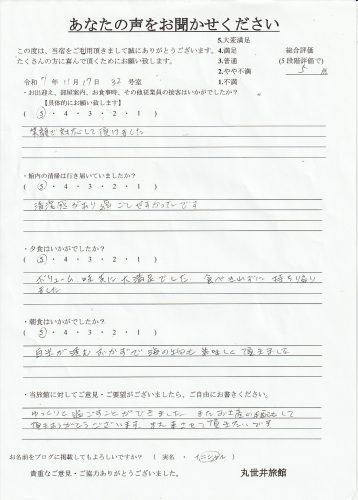 あなたの声をお聞かせください
この度は、当宿をご利用頂きまして誠にありがとうございます。
たくさんの方に喜んで頂くためにお願い致します。
5.大変満足
4.満足
3.普通
2.やや不満
1.不満
総合評価
(5段階評価で)
5 点
令和 7年 11月 17日 32号室
・お出迎え、部屋案内、お食事時、その他従業員の接客はいかがでしたか?
【具体的にお願い致します】
( 5 ・ 4 ・ 3 ・ 2 ・ 1 )
笑顔で対応して頂けました
・館内の清掃は行き届いていましたか?
( 5 ・ 4 ・ 3 ・ 2 ・ 1 )
清潔感があり過ごしやすかったです
・夕食はいかがでしたか?
( 5 ・ 4 ・ 3 ・ 2 ・ 1 )
ボリューム、味共に大満足でした 食べきれずに持ち帰り
ました
・朝食はいかがでしたか?
( 5 ・ 4 ・ 3 ・ 2 ・ 1 )
白米が進むおかずで海の幸も美味しく頂きました
・当旅館に対してご意見・ご要望がございましたら、ご自由にお書きください。
ゆっくりと過ごすことができました またお土産の手配もして
頂きありがとうございます また来させて頂きたいです
お名前をブログに掲載してもよろしいですか? ( 実名 ・ イニシャル )
貴重なご意見・ご協力ありがとうございました。
丸世井旅館